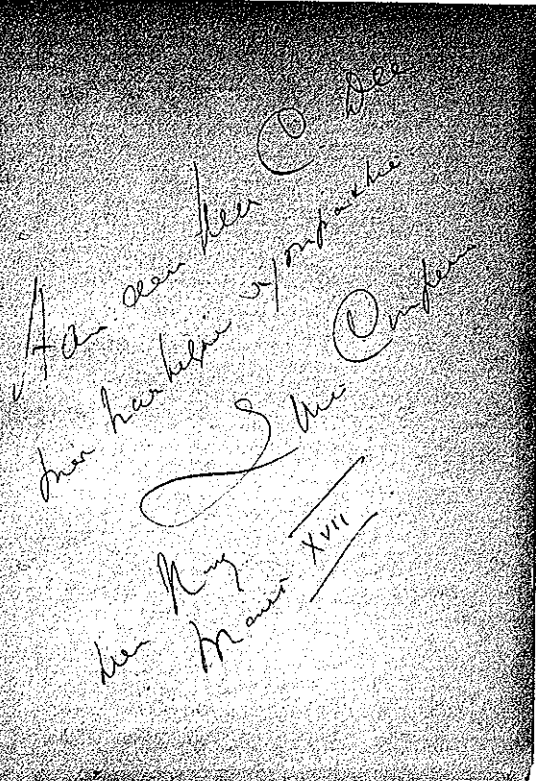 Aan den heer C
met hartelijke sympathie
Louis Couperus
den Haag
Maart XVII